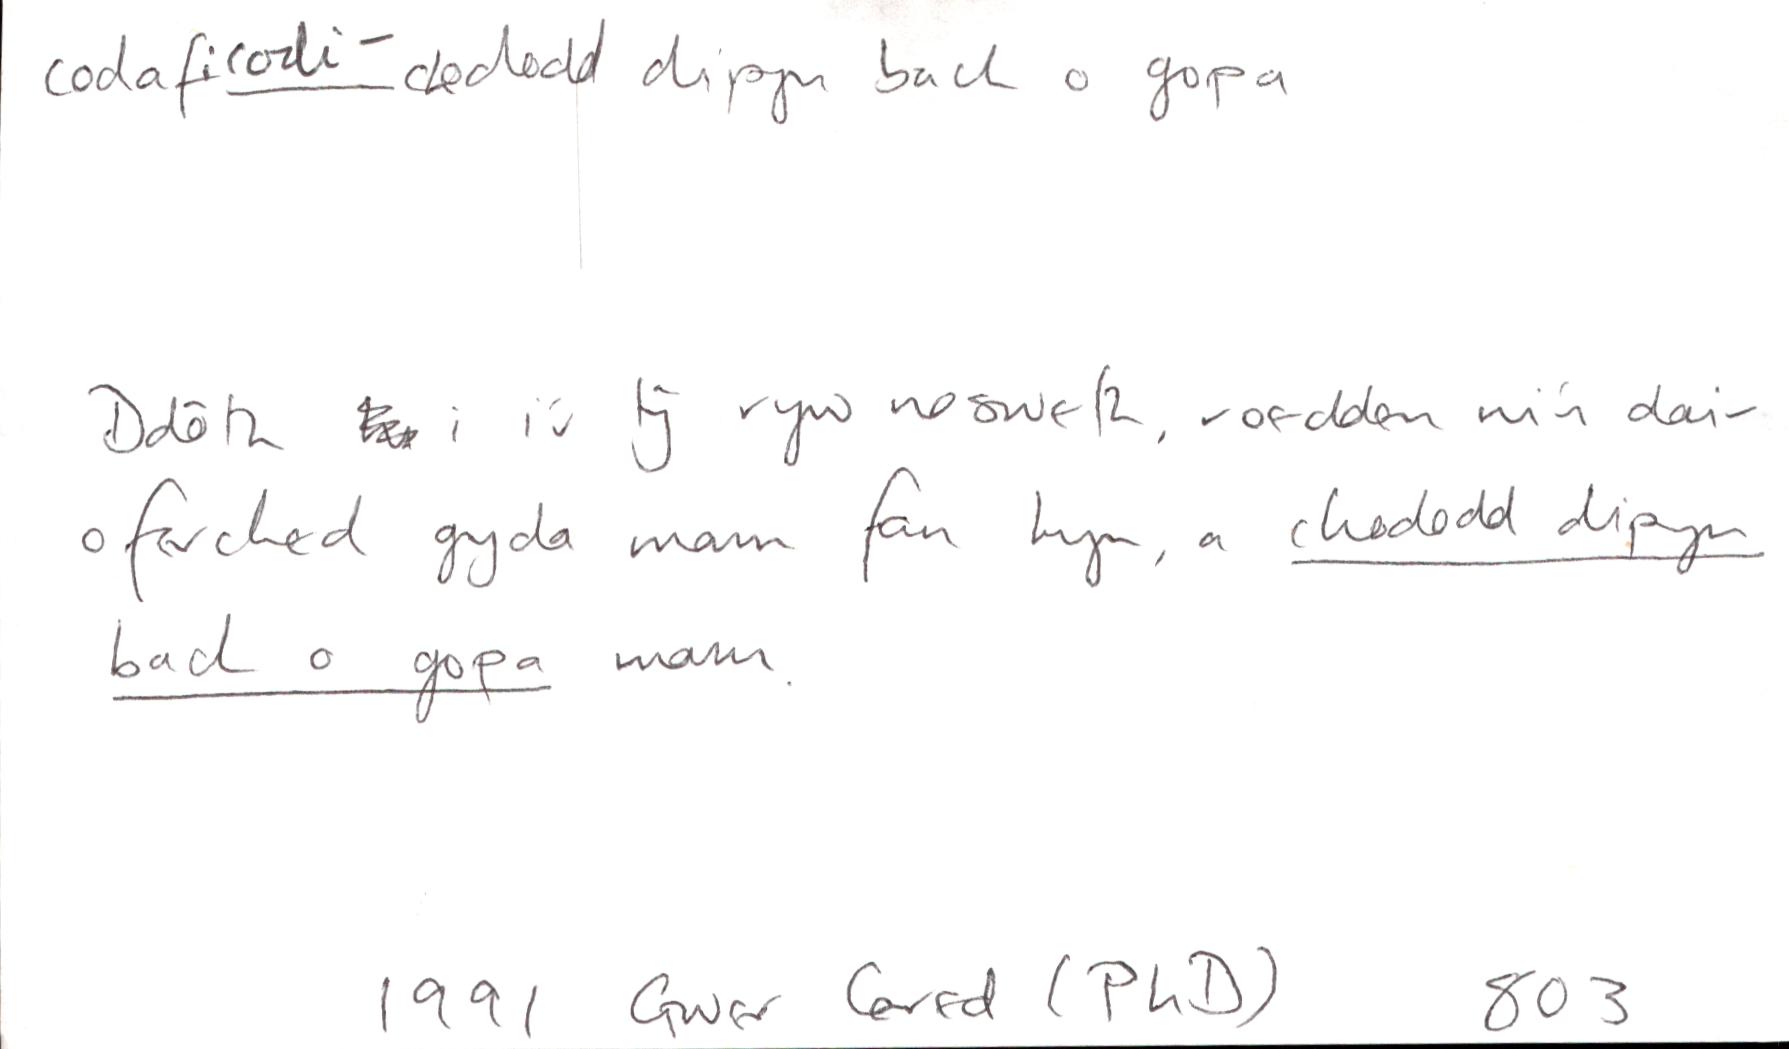 codaf: codi - chododd dipyn bach o gopa
Ddôth i i'r tŷ ryw nosweth, roedden ni'n dair
o ferched gyda mam fan hyn, a chododd dipyn
bach o gopa mam.
1991 Gwer Cered (PhD) 803